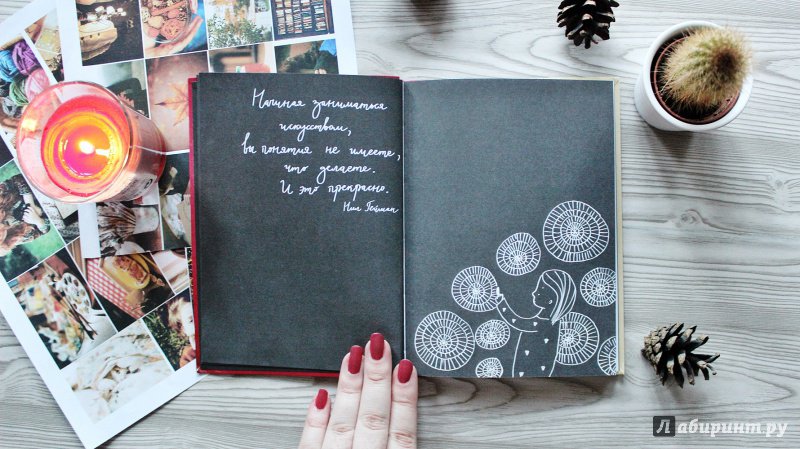 Начиная заниматься
искусством,
вы понятия не имеете,
что делаете.
И это прекрасно.
Нил Гейман
Лабиринт.ру